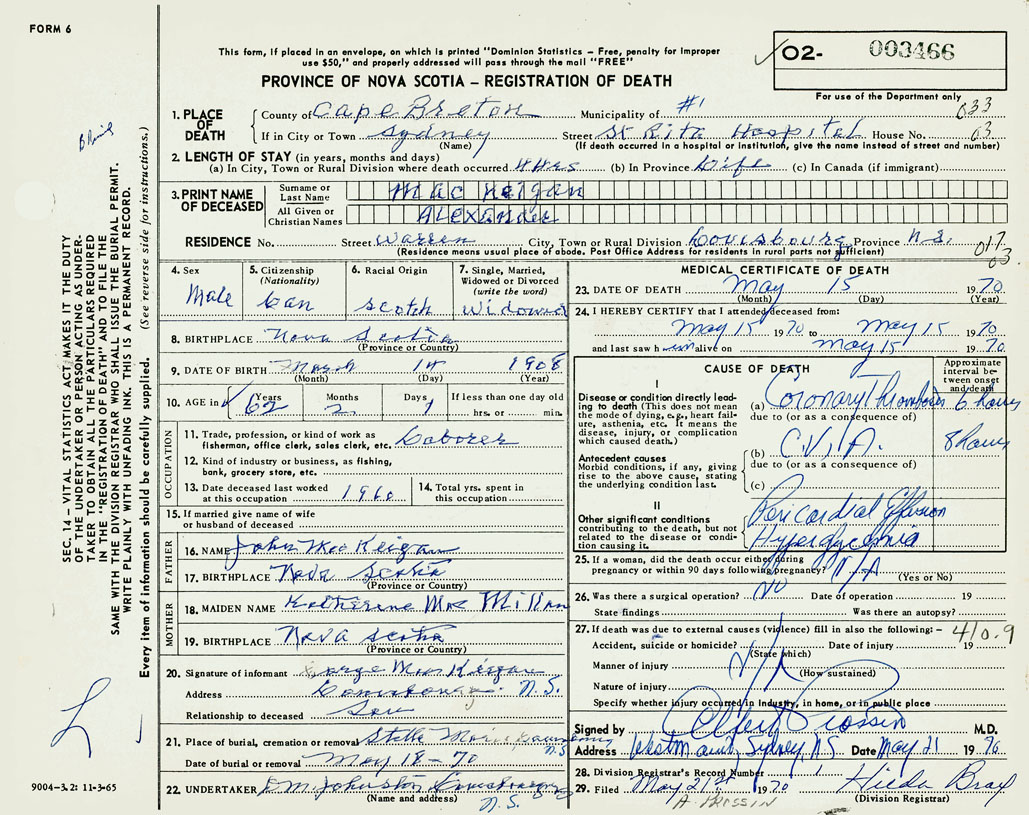 FORM 6
This form, if placed in an envelope, on which is printed "Dominion Statistics – Free, penalty for improper
use $50," and properly addressed will pass through the mail "FREE"
PROVINCE OF NOVA SCOTIA – REGISTRATION OF DEATH
O2- 003466
For use of the Department only
033
03
1. PLACE OF DEATH
County of Cape Breton Municipality of #1
If in City or Town Sydney Street St Rita Hospital House No.
(Name) (If death occurred in a hospital or institution, give the name instead of street and number)
2. LENGTH OF STAY (in years, months and days)
(a) In City, Town or Rural Division where death occurred 4 Hrs (b) In Province Life (c) In Canada (if immigrant)
3. PRINT NAME OF DECEASED
Surname or Last Name Mac Keigan
All Given or Christian Names Alexander
RESIDENCE No. Street Warren City, Town or Rural Division Louisbourg Province N.S.
(Residence means usual place of abode. Post Office Address for residents in rural parts not sufficient)
017
03
4. Sex Male
5. Citizenship (Nationality) Can
6. Racial Origin Scotch
7. Single, Married, Widowed or Divorced (write the word) Widowed
8. BIRTHPLACE Nova Scotia
(Province or Country)
9. DATE OF BIRTH March 14 1908
(Month) (Day) (Year)
10. AGE in Years 62 Months 2 Days 1 If less than one day old
hrs. or min.
OCCUPATION
11. Trade, profession, or kind of work as
fisherman, office clerk, sales clerk, etc. Laborer
12. Kind of industry or business, as fishing,
bank, grocery store, etc.
13. Date deceased last worked
at this occupation 1960
14. Total yrs. spent in
this occupation
15. If married give name of wife
or husband of deceased
FATHER
16. NAME John MacKeigan
17. BIRTHPLACE Nova Scotia
(Province or Country)
MOTHER
18. MAIDEN NAME Katherine Mac Millan
19. BIRTHPLACE Nova Scotia
(Province or Country)
20. Signature of informant George MacKeigan
Address Louisbourg N.S.
Relationship to deceased Son
21. Place of burial, cremation or removal Stella Maris Louisbourg
N.S.
Date of burial or removal May 18-70
22. UNDERTAKER D.M. Johnston Louisbourg
(Name and address) N.S.
MEDICAL CERTIFICATE OF DEATH
23. DATE OF DEATH May 15 1970
(Month) (Day) (Year)
24. I HEREBY CERTIFY that I attended deceased from:
May 15 1970 to May 15 1970
and last saw h im alive on May 15 1970
CAUSE OF DEATH
Approximate interval between onset and death
I
Disease or condition directly leading to death (This does not mean the mode of dying, e.g., heart failure, asthenia, etc. It means the disease, injury, or complication which caused death.)
(a) Coronary Thrombosis 6 hours
due to (or as a consequence of)
Antecedent causes
Morbid conditions, if any, giving rise to the above cause, stating the underlying condition last.
(b) C.V.A. 8 hours
due to (or as a consequence of)
(c)
II
Other significant conditions contributing to the death, but not related to the disease or condition causing it.
Pericardial Effusion
25. If a woman, did the death occur either during
pregnancy or within 90 days following pregnancy? N/A
(Yes or No)
26. Was there a surgical operation? No Date of operation 19
State findings Was there an autopsy?
27. If death was due to external causes (violence) fill in also the following: – 410.9
Accident, suicide or homicide? Date of injury 19
(State which)
Manner of injury N/A
(How sustained)
Nature of injury
Specify whether injury occurred in industry, in home, or in public place
Signed by Albert Prossin M.D.
Address Sydney, N.S. Date May 21 1970
28. Division Registrar's Record Number 1
29. Filed May 21st 1970 Hilda Bray
(Division Registrar)
A. PROSSIN
SEC. 14 – VITAL STATISTICS ACT MAKES IT THE DUTY
OF THE UNDERTAKER OR PERSON ACTING AS UNDER-
TAKER TO OBTAIN ALL THE PARTICULARS REQUIRED
IN THE "REGISTRATION OF DEATH" AND TO FILE THE
SAME WITH THE DIVISION REGISTRAR WHO SHALL ISSUE THE BURIAL PERMIT.
WRITE PLAINLY WITH UNFADING INK. THIS IS A PERMANENT RECORD.
Every item of information should be carefully supplied. (See reverse side for instructions.)
9004-3.2: 11-3-65